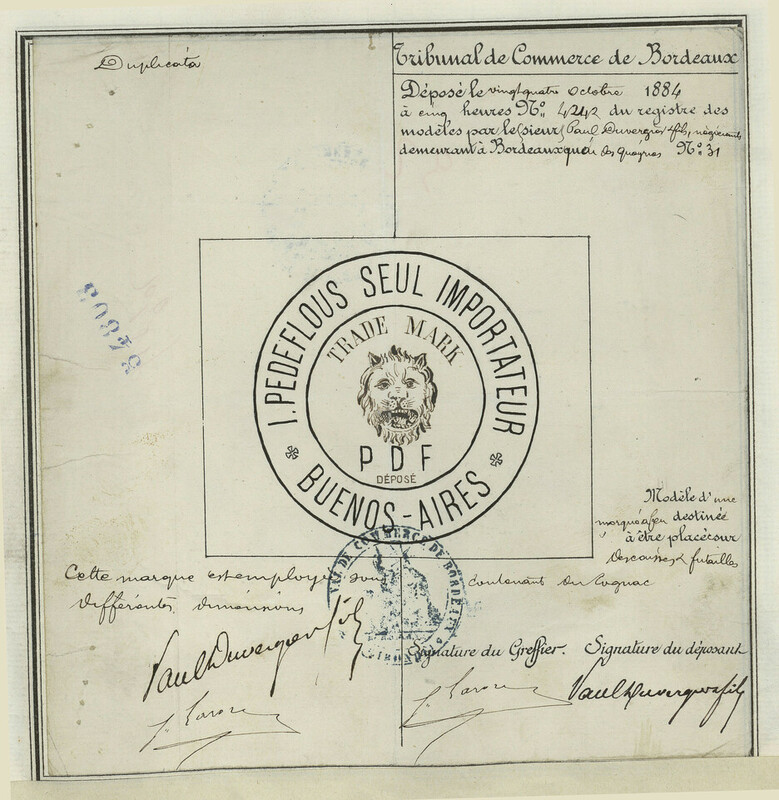 Duplicata
Tribunal de Commerce de Bordeaux
Déposé le vingt quatre Octobre 1884
à cinq heures No. 4242 du registre des
modèles par le sieur Paul Duvergier & fils, négociants
demeurant à Bordeaux No. 31
I. PEDEFLOUS SEUL IMPORTATEUR
TRADE MARK
PDF
DÉPOSÉ
BUENOS-AIRES
Modèle d'une
marque à feu destinée
à être placée sur
des caisses & futailles
Cette marque est employée sous
contenant du Cognac
différentes dimensions
DE COMMERCE DE BORDEAUX
Paul Duvergier & fils
Signature du Greffier. Signature du déposant
Paul Duvergier & fils